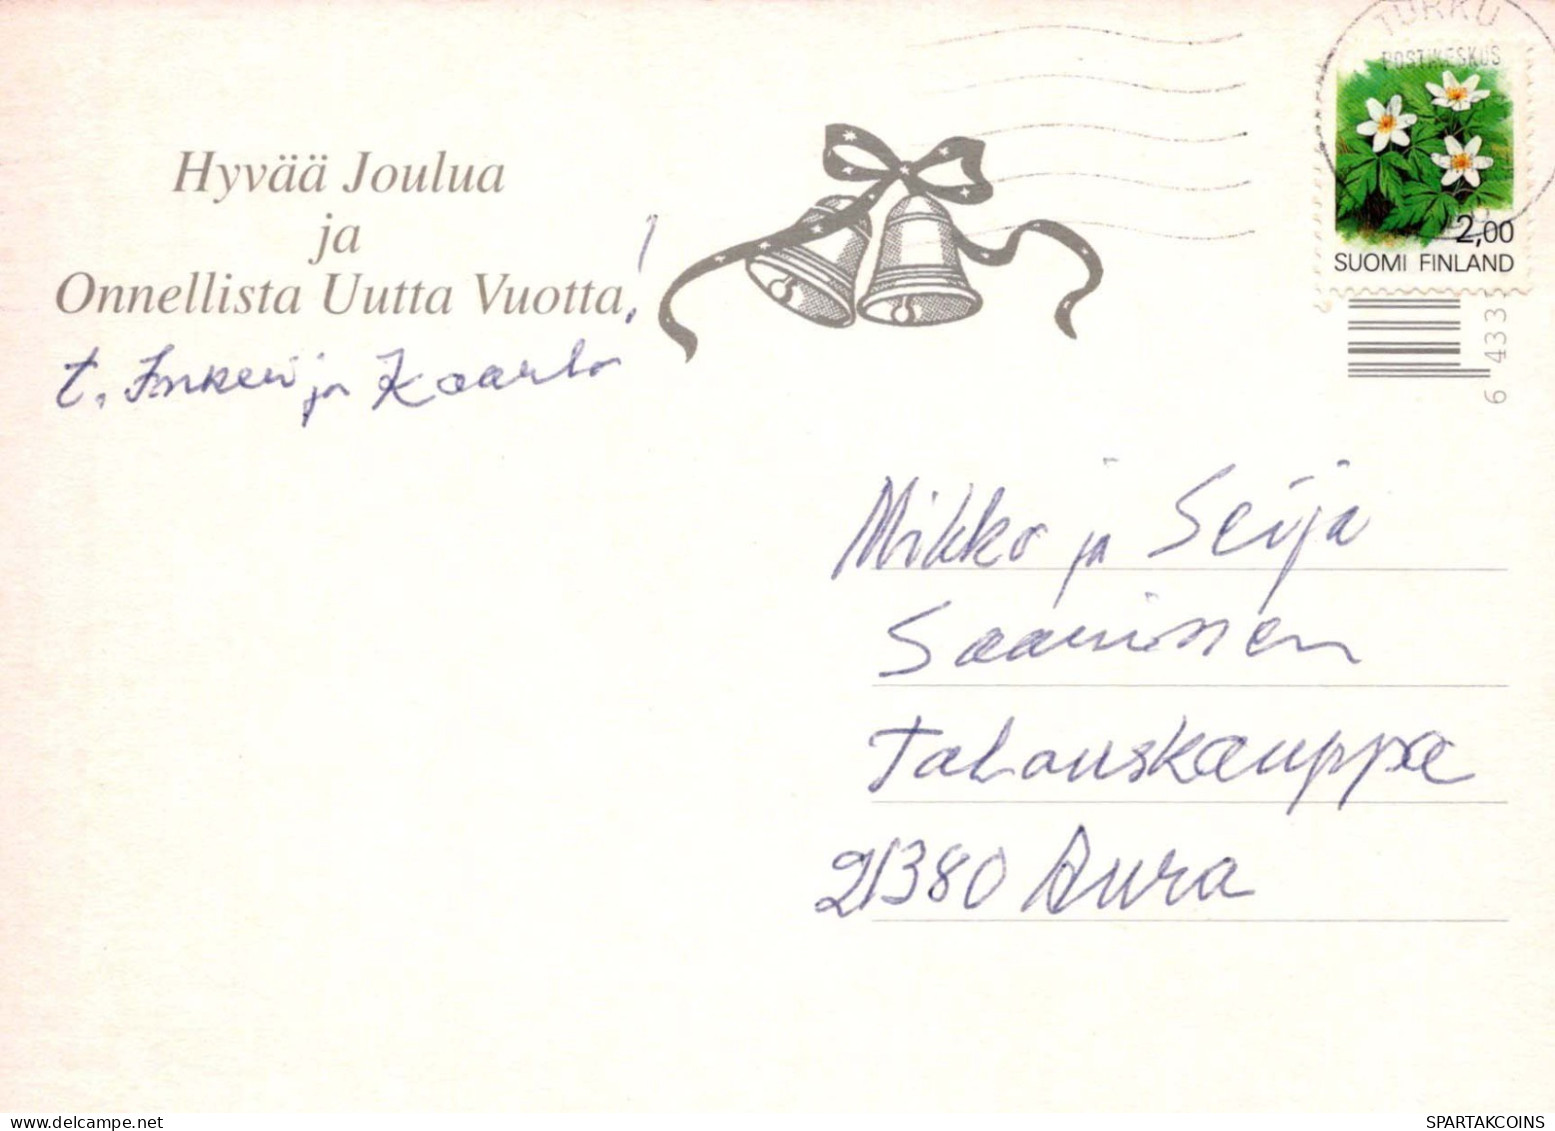 Hyvää Joulua
ja
Onnellista Uutta Vuotta!
t. Inkeri ja Kaarlo
TURKU
POSTIKESKUS
2,00
SUOMI FINLAND
6 433
Mikko ja Seija
Saarinen
Talouskauppa
21380 Aura
www.delcampe.net
SPARTAKCOINS